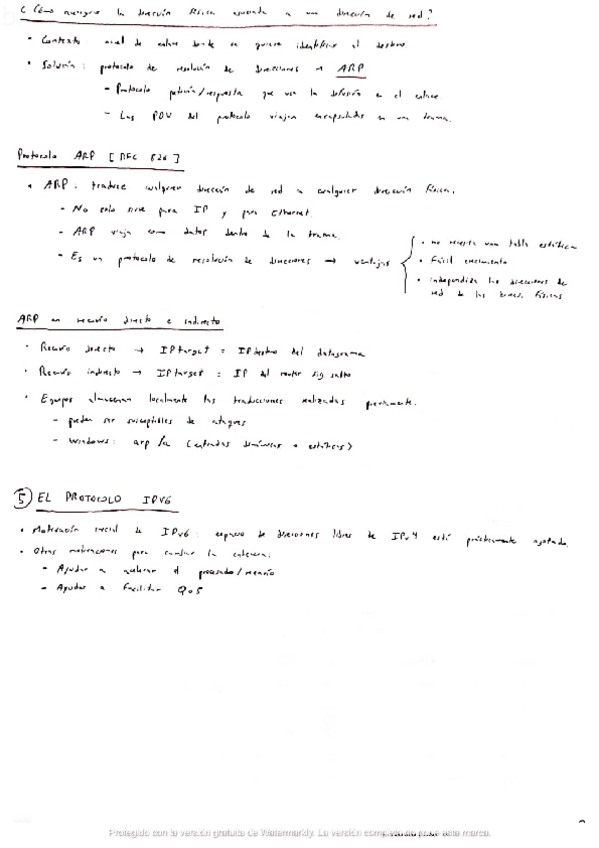 ¿Cómo averiguo la dirección física asociada a una dirección de red?
• Contexto nivel de enlace donde se quiere identificar al destino
• Solución: protocolo de resolución de direcciones → ARP
– Protocolo petición/respuesta que usa la difusión en el enlace.
– Las PDU del protocolo viajan encapsuladas en una trama.
Protocolo ARP [RFC 826]
• ARP: traduce cualquier dirección de red a cualquier dirección física.
– No solo sirve para IP y para Ethernet.
– ARP viaja como datos dentro de la trama.
– Es un protocolo de resolución de direcciones → ventajas
• no necesita una tabla estática
• Fácil crecimiento
• independiza las direcciones de
red de las direc. físicas
ARP en reenvío directo e indirecto
• Reenvío directo → IP target = IP destino del datagrama
• Reenvío indirecto → IP target = IP del router sig salto
• Equipos almacenan localmente las traducciones realizadas previamente.
– pueden ser susceptibles de ataques
– Windows: arp /a (entradas dinámicas o estáticas)
5 EL PROTOCOLO IPV6
• Motivación inicial de IPv6: espacio de direcciones libres de IPv4 está prácticamente agotado.
• Otras motivaciones para cambiar la cabecera:
– Ayudar a acelerar el procesado/reenvío
– Ayudar a facilitar QoS
Protegido con la versión gratuita de Watermarkly. La versión completa no pone esta marca.